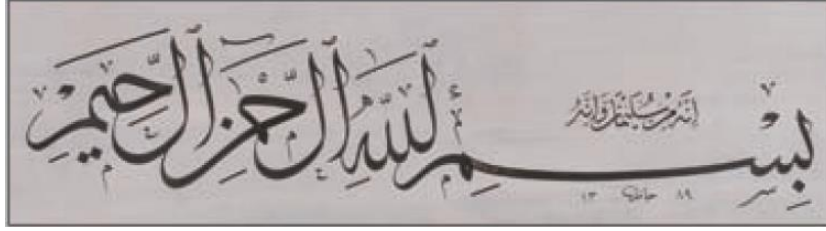 إنه من سليمان وإنه
بسم الله الرحمن الرحيم
٨٩ حامد ١٣